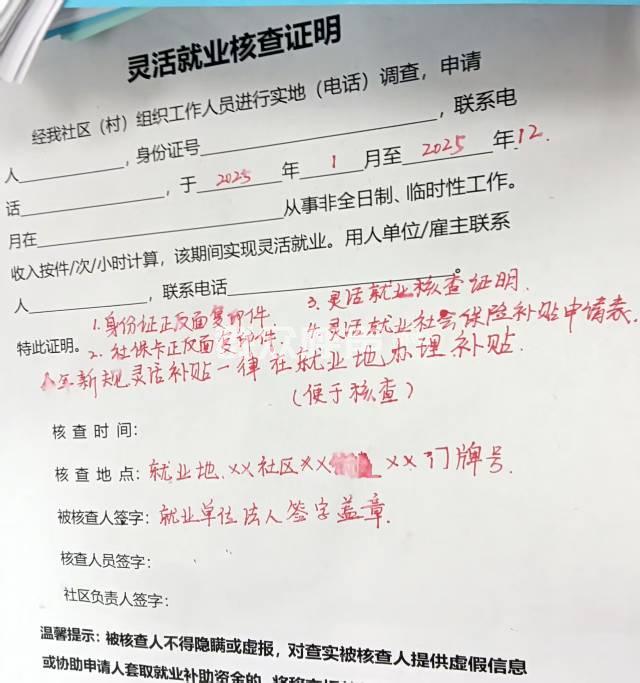 灵活就业核查证明
经我社区（村）组织工作人员进行实地（电话）调查，申请
人____，身份证号____，联系电
话____，于 2025 年 1 月至 2025 年12.
月在____从事非全日制、临时性工作。
收入按件/次/小时计算，该期间实现灵活就业。用人单位/雇主联系
人____，联系电话____。
1.身份证正反面复印件 3.灵活就业核查证明.
特此证明。2.社保卡正反面复印件 4.灵活就业社会保险补贴申请表.
今年新规灵活补贴一律在就业地办理补贴.
（便于核查）
核查时间：
核查地点：就业地.××社区×× ××门牌号.
被核查人签字：就业单位法人签字盖章.
核查人员签字：
社区负责人签字：
温馨提示：被核查人不得隐瞒或虚报，对查实被核查人提供虚假信息
或协助申请人套取就业补助资金的，将